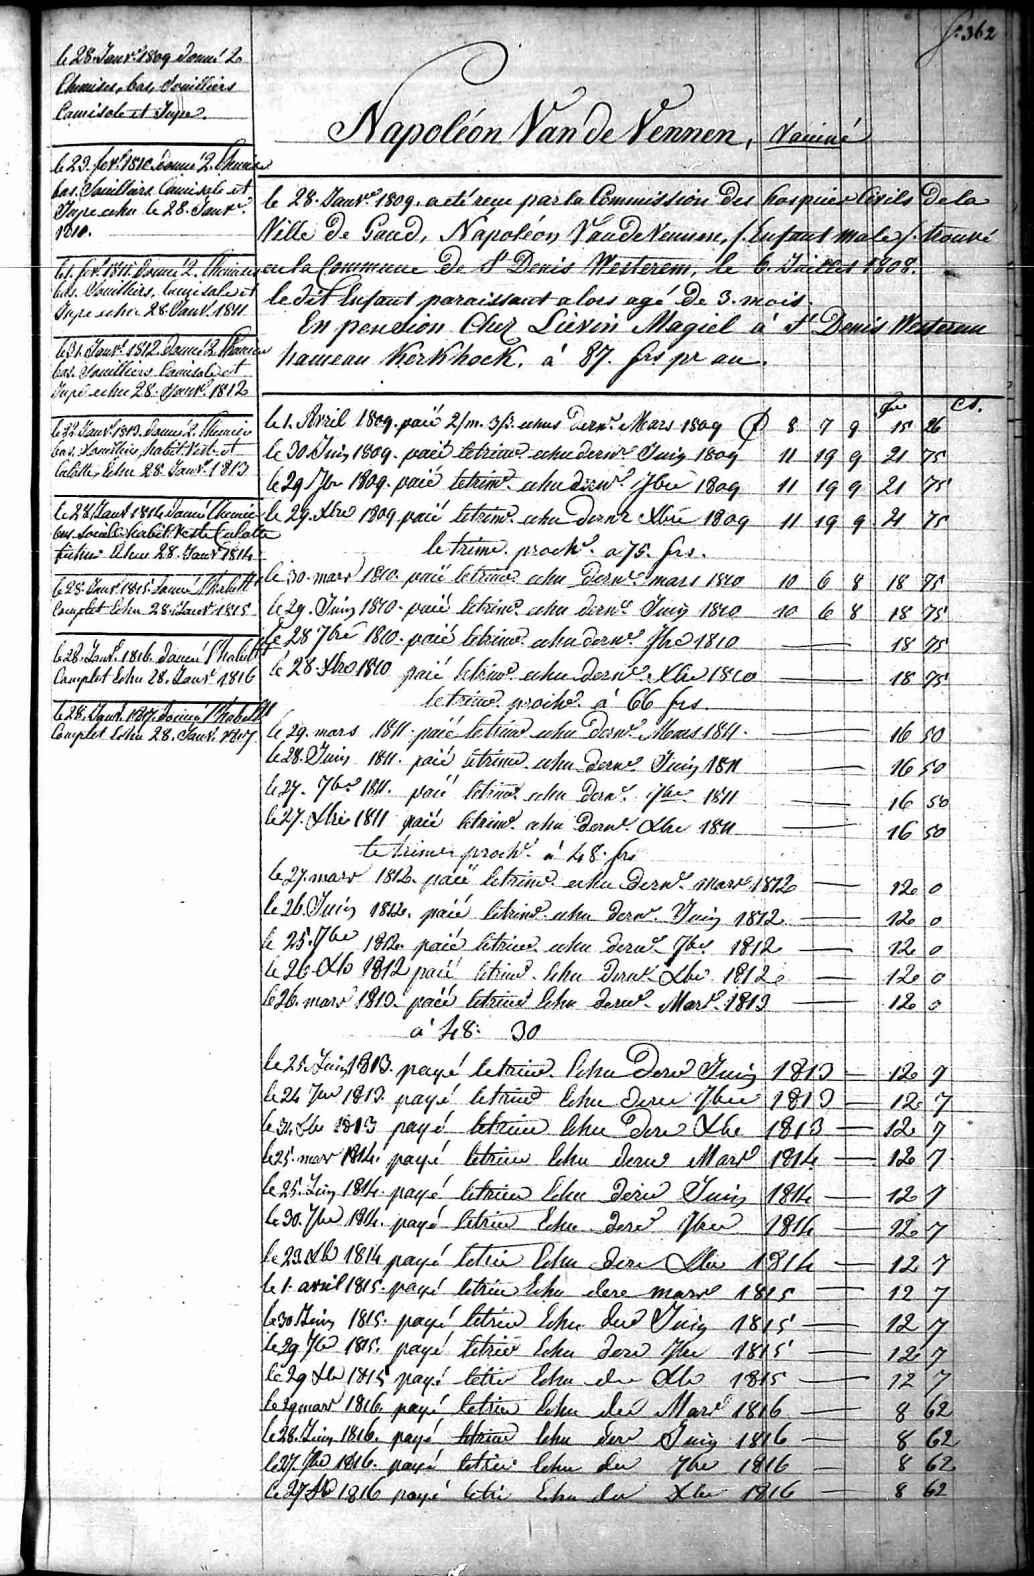 f. 362
Napoléon Van de Vennen, Vaciné
le 28. Janvr. 1809. a été reçu par la Commission des hospices Civils de la
Ville de Gand, Napoléon Van de Vennen, (: Enfant male :) trouvé
en la Commune de St Denis Westerem, le 6. Juillet 1808.
le dit Enfant paraissant alors agé de 3. mois.
En pension Chez Liévin Magiel à St Denis Westerem
hameau Kerkhoek, à 87. frs pr an.
le 28. Janvr. 1809 donné 2
Chemises, bas, Souilliers
Camisole et Jupe.
le 23. fevr. 1810 donné 2. Chemise
bas, Souilliers, Camisole et
Jupe echu le 28. Janvr.
1810.
le 1. fevr. 1811. donné 2. Chemises
bas, Souilliers, Camisole et
Jupe echu 28. Janvr. 1811
le 31. Janvr. 1812. donné 2. Chemises
bas, Souilliers Camisole et
Jupe echu 28. Janvr. 1812
Janvr. 1813. donné 2. Chemises
bas, Souilliers, habit Veste et
Calotte, Echu 28. Janvr. 1813
le 28 Janvr 1814 donné Chemise
bas Souliers habit Veste Calotte
fichu Echu 28. Janvr 1814.
le 28. Janvr. 1815. donné l'habille
Complet Echu 28. Janvr 1815
le 28. Janvr. 1816. donné l'habille
Complet Echu 28. Janvr 1816
le 28. Janvr. 1817. donné l'habille
Complet Echu 28. Janvr. 1817.
frs cs.
le 1. Avril 1809. paié 2/m. 3/j. echus dernr. Mars 1809 8 7 9 15 26
le 30 Juin 1809. paié le trime. echu dernr. Juin 1809 11 19 9 21 75
le 29 7bre 1809. paié le trime. echu dernr. 7bre 1809 11 19 9 21 75
le 29. Xbre 1809 paié le trime. echu dernr Xbre 1809 11 19 9 21 75
le trime. prochn. a 75. frs.
le 30. mars 1810. paié le trime. echu dernr. mars 1810 10 6 8 18 75
le 29. Juin 1810. paié le trime. echu dernr. Juin 1810 10 6 8 18 75
le 28 7bre 1810. paié le trime. echu dernr. 7bre 1810 — 18 75
le 28 Xbre 1810 paié le trime. echu dernr. Xbre 1810 — 18 75
le trime. prochn. à 66 frs.
le 29. mars 1811. paié le trime echu dernr. Mars 1811. — 16 50
le 28. Juin 1811. paié le trime. echu dernr. Juin 1811 — 16 50
le 27. 7bre 1811. paié le trime. echu dernr. 7bre 1811 — 16 50
le 27. Xbre 1811 paié le trime. echu dernr. Xbre 1811 — 16 50
le trime prochn. à 48. frs
le 27. mars 1812. paié le trime. echu dernr. mars 1812 — 12 0
le 26. Juin 1812. paié le trime. echu dernr. Juin 1812 — 12 0
le 25. 7bre 1812. paié le trime. echu dernr. 7bre 1812 — 12 0
le 26 Xbre 1812 paié le trime. Echu dernr. Xbre 1812 — 12 0
le 26. mars 1813. paié le trime Echu dernr. Mars. 1813 — 12 0
à 48. 30
le 25. Juin 1813. payé le trime. Echu derne Juin 1813 — 12 7
le 24 7bre 1813. payé le trime Echu derne 7bre 1813 — 12 7
le 31. Xbre 1813 payé le trime Echu derne Xbre 1813 — 12 7
le 25. mars 1814. payé le trime Echu derne Mars 1814 — 12 7
le 25. Juin 1814. payé le trime Echu derne Juin 1814 — 12 7
le 30. 7bre 1814. payé le trime Echu derne 7bre 1814 — 12 7
le 23. Xbre 1814 payé le trime Echu derne Xbre 1814 — 12 7
le 1. avril 1815. payé le trime Echu derne mars 1815 — 12 7
le 30 Juin 1815. payé le trime Echu dere Juin 1815 — 12 7
le 29 7bre 1815. payé le trime Echu dere 7bre 1815 — 12 7
le 29 Xbre 1815 payé le trie Echu de Xbre 1815 — 12 7
le 29 mars 1816. payé le trie Echu de Mars 1816 — 8 62
le 28. Juin 1816. payé le trime Echu dere Juin 1816 — 8 62
le 27. 7bre 1816. payé le trie Echu de 7bre 1816 — 8 62
le 27 Xbre 1816 payé le trie Echu de Xbre 1816 — 8 62